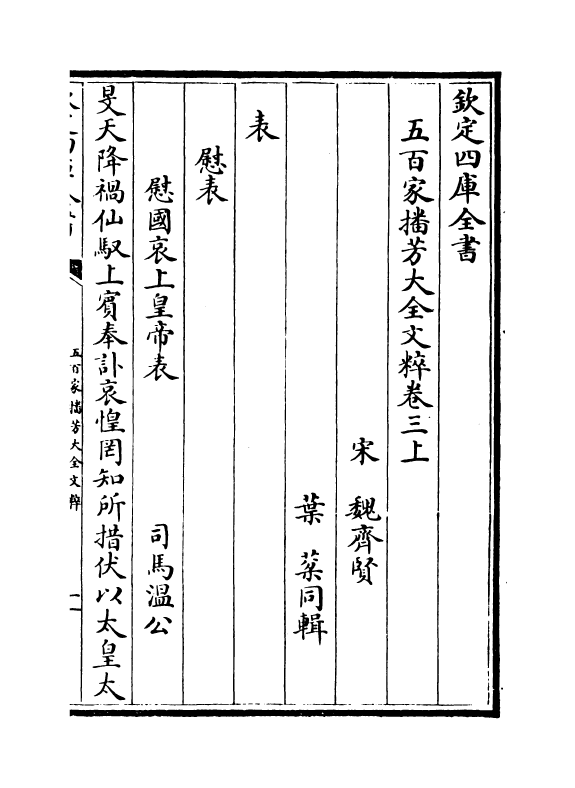 欽定四庫全書
五百家播芳大全文粹卷三上
宋 魏齊賢
葉 棻同輯
表
慰表
慰國哀上皇帝表 司馬溫公
旻天降禍仙馭上賓奉訃哀惶罔知所措伏以太皇太
五百家播芳大全文粹
一